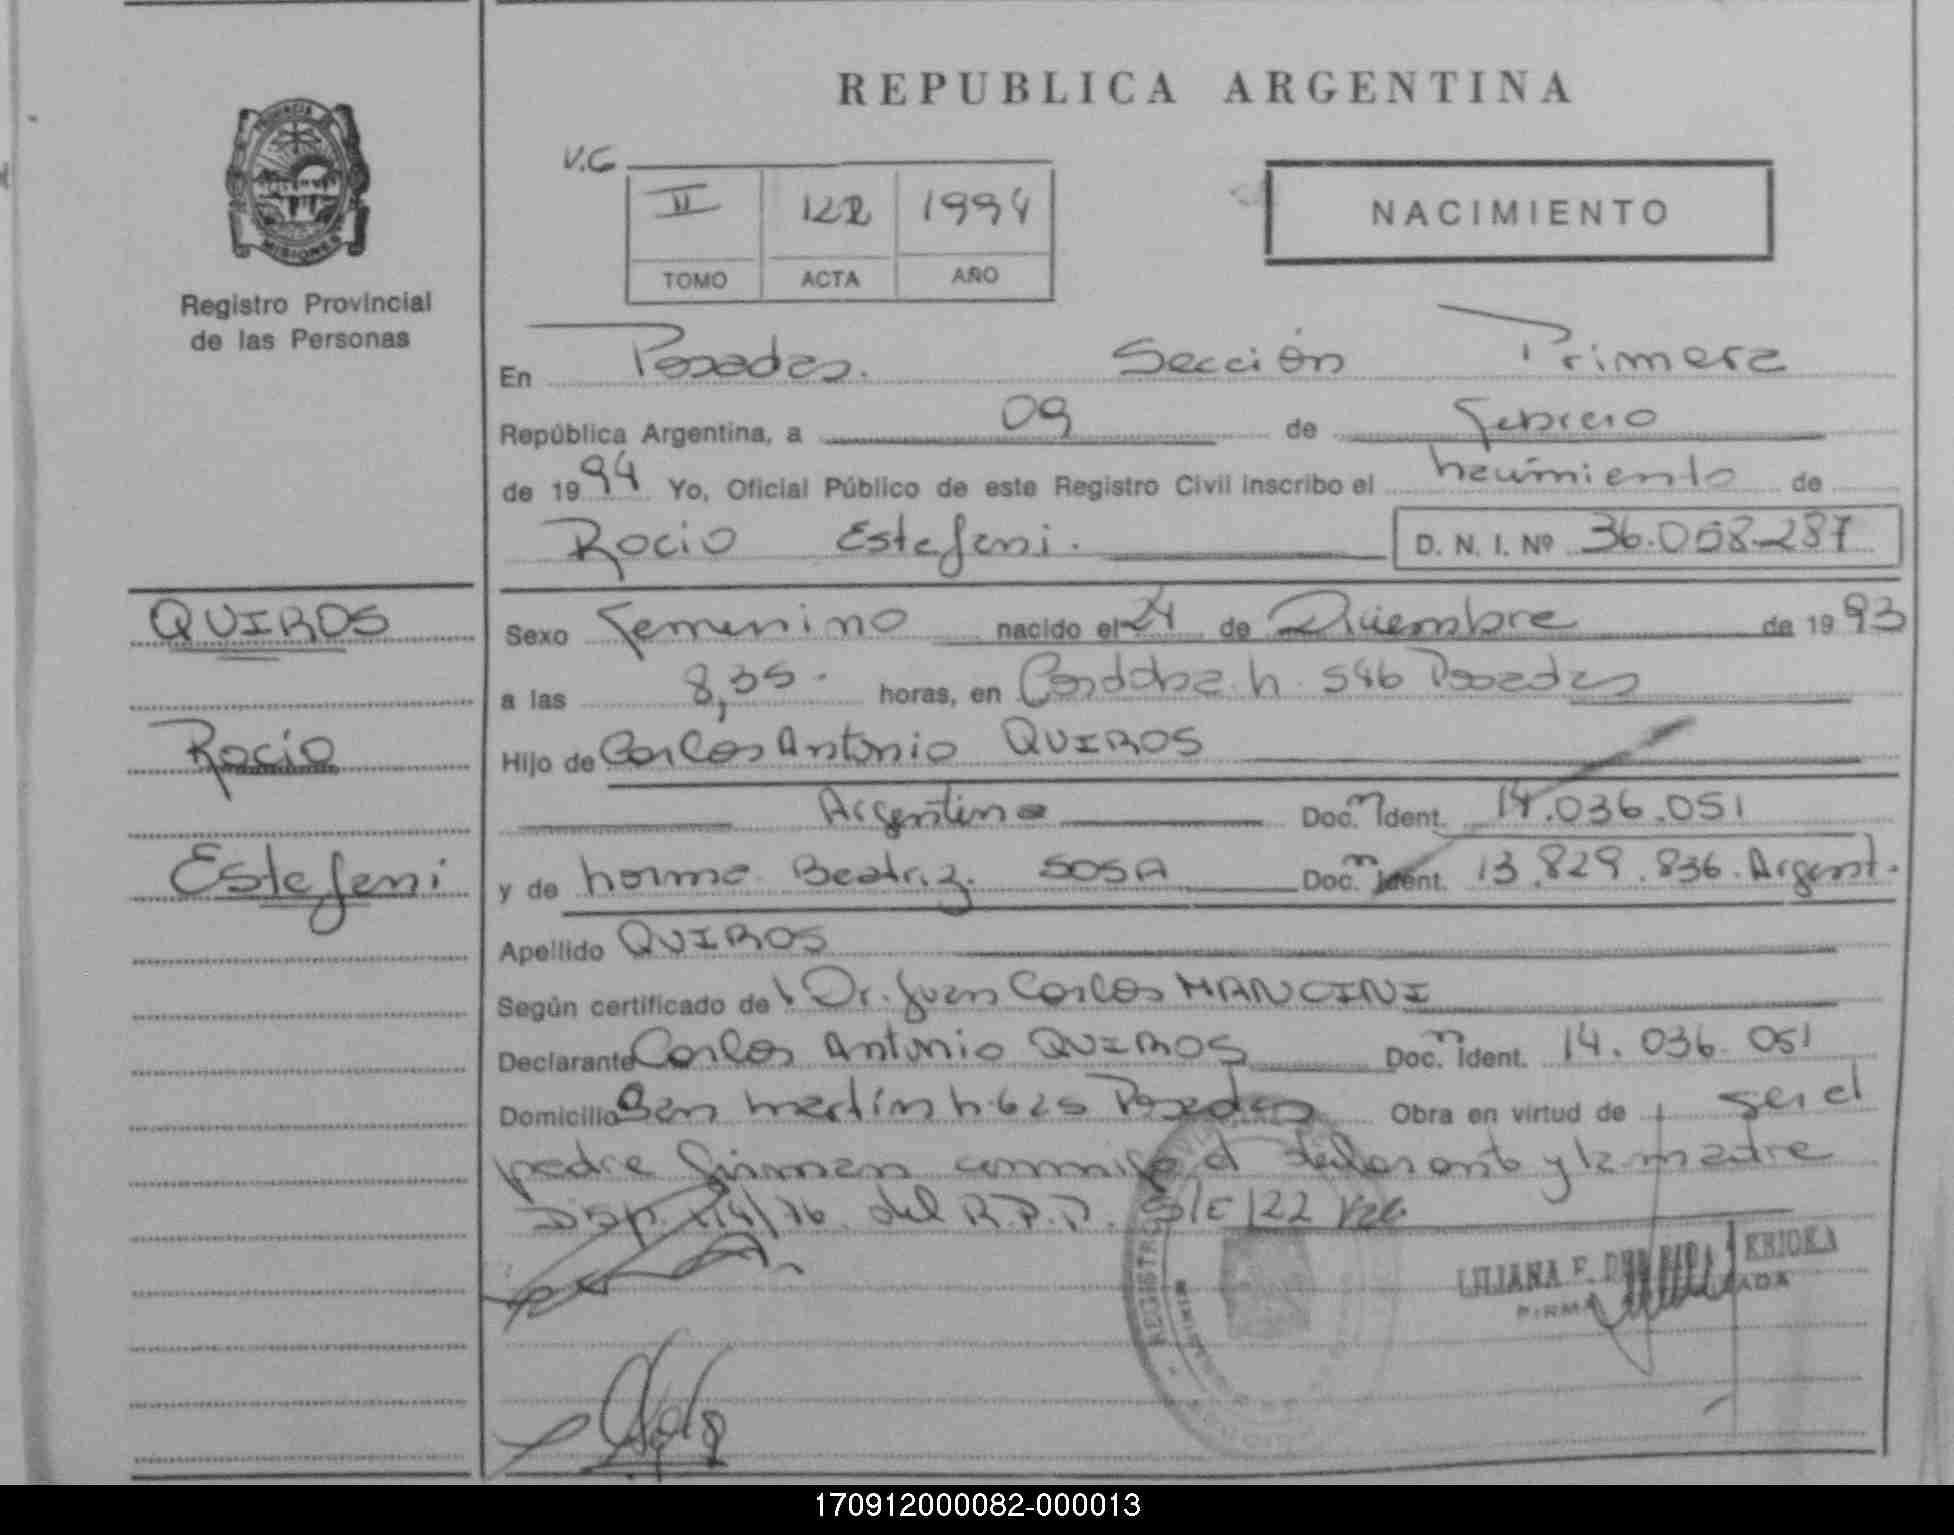 REPUBLICA ARGENTINA
PROVINCIA DE
MISIONES
Registro Provincial
de las Personas
V.G
II 122 1994
TOMO ACTA AÑO
NACIMIENTO
En Posadas. Sección Primera
República Argentina, a 09 de Febrero
de 1994 Yo, Oficial Público de este Registro Civil inscribo el nacimiento de
Rocio Estefani. D. N. I. Nº 36.058.287
QUIROS
Rocio
Estefani
Sexo Femenino nacido el 24 de Diciembre de 1993
a las 8,35. horas, en Cordoba n. 546 Posadas
Hijo de Carlos Antonio QUIROS
Argentino Doc. Ident. 14.036.051
y de Norma Beatriz SOSA Doc. Ident. 13.829.836. Argent.
Apellido QUIROS
Según certificado de Dr. Juan Carlos MANCINI
Declarante Carlos Antonio QUIROS Doc. Ident. 14.036.051
Domicilio San Martín n. 625 Posadas Obra en virtud de ser el
padre firman conmigo el declarante y la madre
Disp. 114/76 del R.P.P. S/E 122
REGISTRO
LILIANA F. DE
FIRMA
170912000082-000013